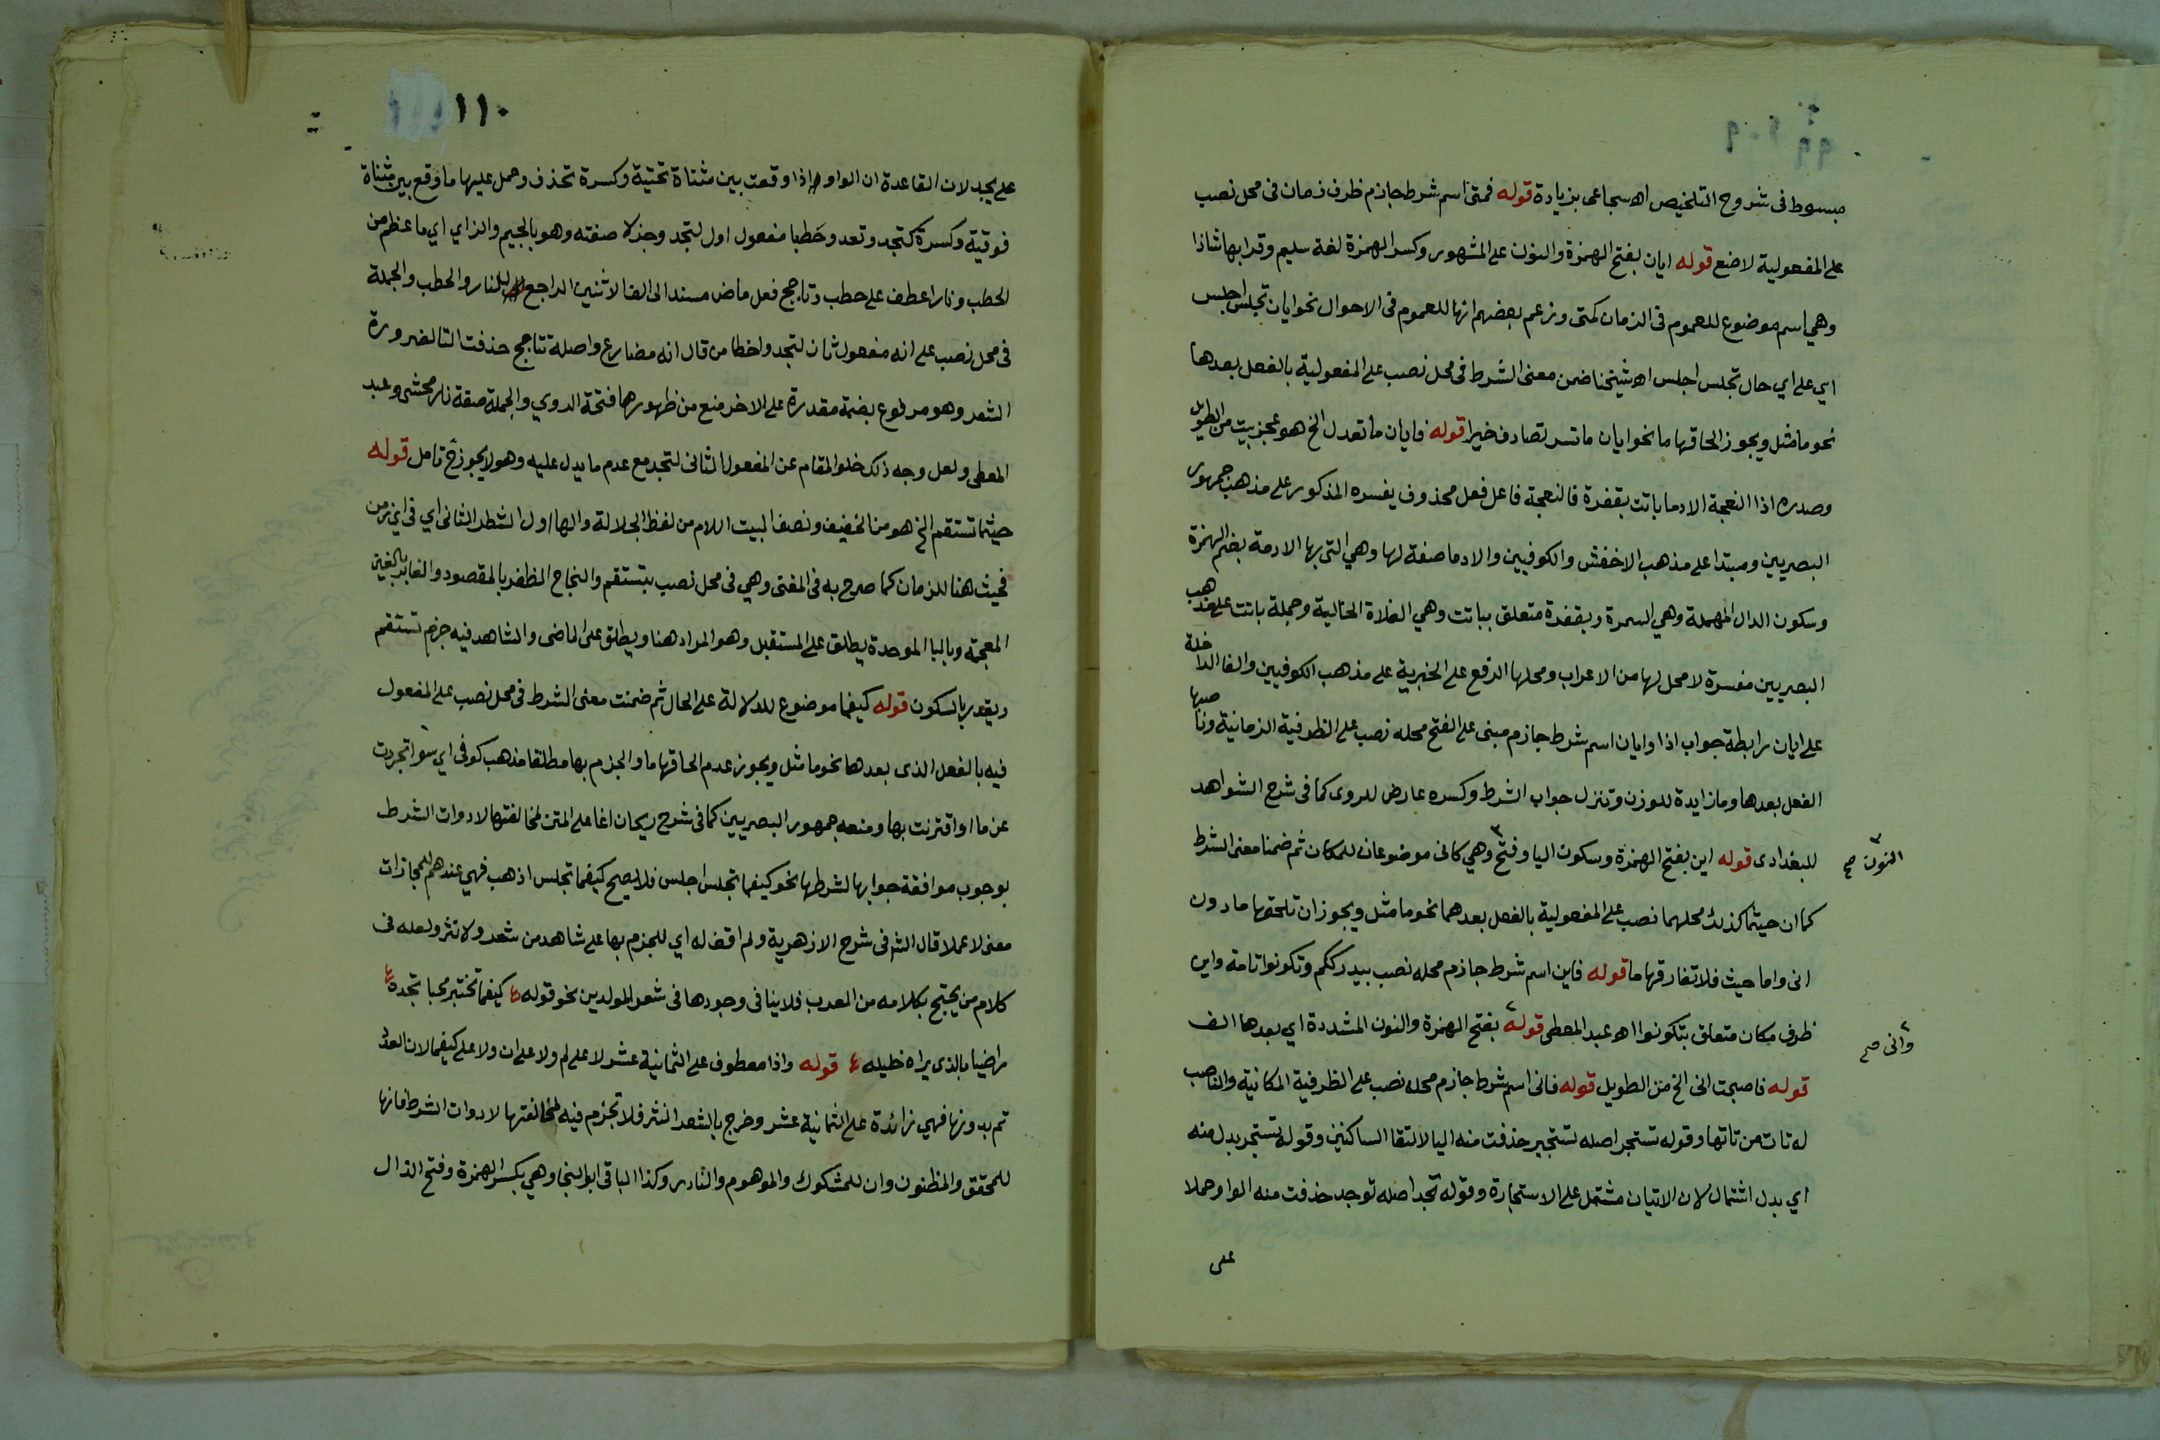 مبسوط فى شروح التلخيص اه سجاعى بزيادة قوله فمتى اسم شرط جازم ظرف زمان فى محل نصب
على المفعولية لاضع قوله ايان بفتح الهمزة والنون على المشهور وكسر الهمزة لغة سليم وقرا بها شاذا
وهي اسم موضوع للعموم فى الزمان كمتى وزعم بعضهم انها للعموم فى الاحوال نحو ايان تجلس اجلس
اي على اي حال تجلس اجلس اه شيخنا ضمن معنى الشرط فى محل نصب على المفعولية بالفعل بعدها
نحو ما مثل ويجوز الحاقها ما نحو ايان ما تسر تصادف خيرا قوله فايان ما تعدل الخ هو عجز بيت من الطويل
وصدره اذا النعجة الادما باتت بقفرة فالنعجة فاعل فعل محذوف يفسره المذكور على مذهب جمهور
البصريين ومبتدا على مذهب الاخفش والكوفيين والادما صفة لها وهي التى بها الادمة بضم الهمزة
وسكون الدال المهملة وهي السمرة وبقفرة متعلق بباتت وهي الفلاة الخالية وجملة باتت على مذهب
البصريين مفسرة لا محل لها من الاعراب ومحلها الرفع على الخبرية على مذهب الكوفيين والفا الداخلة
على ايان رابطة جواب اذا وايان اسم شرط جازم مبنى على الفتح محله نصب على الظرفية الزمانية وناصبها
الفعل بعدها وما زايدة للوزن وتنزل جواب الشرط وكسره عارض للروى كما فى شرح الشواهد
للبغدادى قوله اين بفتح الهمزة وسكون اليا وفتح وهي كانى موضوعان للمكان ثم ضمنا معنى الشرط
النون صح
كما ان حيثما كذلك محلهما نصب على المفعولية بالفعل بعدهما نحو ما مثل ويجوز ان تلحقها ما دون
انى واما حيث فلا تفارقها ما قوله فاين اسم شرط جازم محله نصب بيدرككم وتكونوا تامة واين
ظرف مكان متعلق بتكونوا اه عبد المعطى قوله بفتح الهمزة والنون المشددة اي بعدها الف
وانى صح
قوله فاصبحت انى الخ من الطويل قوله فانى اسم شرط جازم محله نصب على الظرفية المكانية والناصب
له تات من تاتها وقوله تستجر اصله تستجير حذفت منه اليا لالتقا الساكنين وقوله تستجر بدل منه
اي بدل اشتمال لان الاتيان مشتمل على الاستجارة وقوله تجد اصله توجد حذفت منه الواو حملا
على
١١٠
على يجد لان القاعدة ان الواو اذا وقعت بين مثناة تحتية وكسرة تحذف وحمل عليها ما وقع بين مثناة
فوقية وكسرة كتجد وتعد وحطبا مفعول اول لتجد وجزلا صفته وهو بالجيم والزاي اي ما عظم من
الحطب ونارا عطف على حطب وتاجج فعل ماض مسند الى الف الاثنين الراجع للنار والحطب والجملة
فى محل نصب على انه مفعول ثان لتجد واخطا من قال انه مضارع واصلة تتاجج حذفت التا لضرورة
الشعر وهو مرفوع بضمة مقدرة على الاخر منع من ظهورها فتحة الروي والجملة صفة نار محشى وعبد
المعطى ولعل وجه ذلك خلو المقام عن المفعول الثانى لتجد مع عدم ما يدل عليه وهو لا يجوز ح تامل قوله
حيثما تستقم الخ هو من الخفيف ونصف البيت اللام من لفظ الجلالة والها اول الشطر الثانى اي فى اي زمن
فحيث هنا للزمان كما صرح به فى المغنى وهي فى محل نصب بتستقم والنجاح الظفر بالمقصود والغابر بالغين
المعجمة وبالبا الموحدة يطلق على المستقبل وهو المراد هنا ويطلق على الماضى والشاهد فيه جزم تستقم
ويقدر بالسكون قوله كيفما موضوع للدلالة على الحال ثم ضمنت معنى الشرط فى محل نصب على المفعول
فيه بالفعل الذى بعدها نحو ما مثل ويجوز عدم الحاقها ما والجزم بها مطلقا مذهب كوفى اي سوا تجردت
عن ما او اقترنت بها ومنعه جمهور البصريين كما فى شرح ريحان اغا على المتن لمخالفتها لادوات الشرط
بوجوب موافقة جوابها لشرطها نحو كيفما تجلس اجلس فلا يصح كيفما تجلس اذهب فهي عندهم للمجازات
معنى لا عملا قال الش فى شرح الازهرية ولم اقف له اي للجزم بها على شاهد من شعر ولا نثر ولعله فى
كلام من يحتج بكلامه من العرب فلا ينافى وجودها فى شعر المولدين نحو قوله كيفما تختبر محبا تجده
راضيا بالذى يراه خليله قوله واذا معطوف على الثمانية عشر لا على لم ولا على ان ولا على كيفما لان العدد
تم بدونها فهي زائدة على الثمانية عشر وخرج بالشعر النثر فلا تجزم فيه لمخالفتها لادوات الشرط فانها
للمحقق والمظنون وان للمشكوك والموهوم والنادر وكذا الباقى ابو النجا وهي بكسر الهمزة وفتح الذال